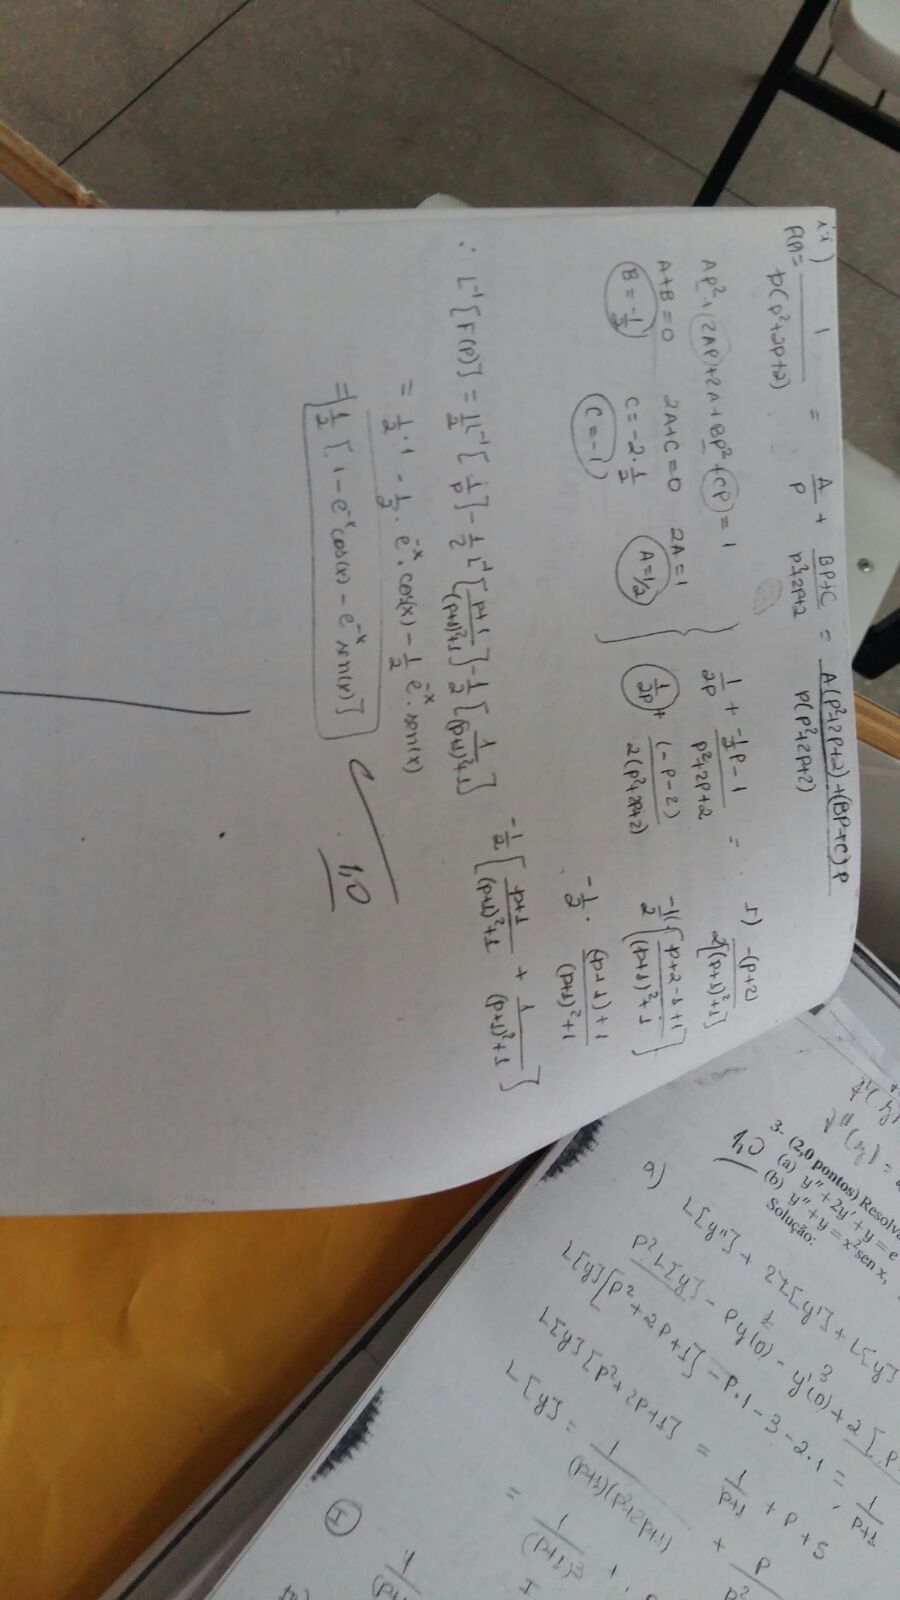 ii)
F(p) = 1/(p(p²+2p+2)) = A/p + (Bp+C)/(p²+2p+2) = (A(p²+2p+2)+(Bp+C)p)/(p(p²+2p+2))
Ap²+2Ap+2A+Bp²+Cp = 1
A+B=0 2A+C=0 2A=1
B=-1/2 C=-2·1/2 A=1/2
C=-1
1/2p + (-1/2p-1)/(p²+2p+2) =
1/2p + (-p-2)/(2(p²+2p+2))
-(p+2)/(2[(p+1)²+1])
-1/2[(p+2-1+1)/((p+1)²+1)]
-1/2 · ((p+1)+1)/((p+1)²+1)
-1/2[(p+1)/((p+1)²+1) + 1/((p+1)²+1)]
∴ L⁻¹[F(p)] = 1/2 L⁻¹[1/p] - 1/2 L⁻¹[(p+1)/((p+1)²+1)] - 1/2[1/((p+1)²+1)]
= 1/2·1 - 1/2·e⁻ˣ·cos(x) - 1/2 e⁻ˣ·sen(x)
= 1/2[1-e⁻ˣcos(x) - e⁻ˣsen(x)]
1,0
1,0
3- (2,0 pontos) Resolva
(a) y'' + 2y' + y = e
(b) y'' + y = x² sen x,
Solução:
a)
L[y''] + 2L[y'] + L[y]
p²L[y] - py(0) - y'(0) + 2[p
L[y][p²+2p+1] - p·1 - 3 - 2·1 = 1/(p+1)
L[y][p²+2p+1] = 1/(p+1) + p + 5
L[y] = 1/((p+1)(p²+2p+1)) + p/
= 1/(p+1)³ +
I